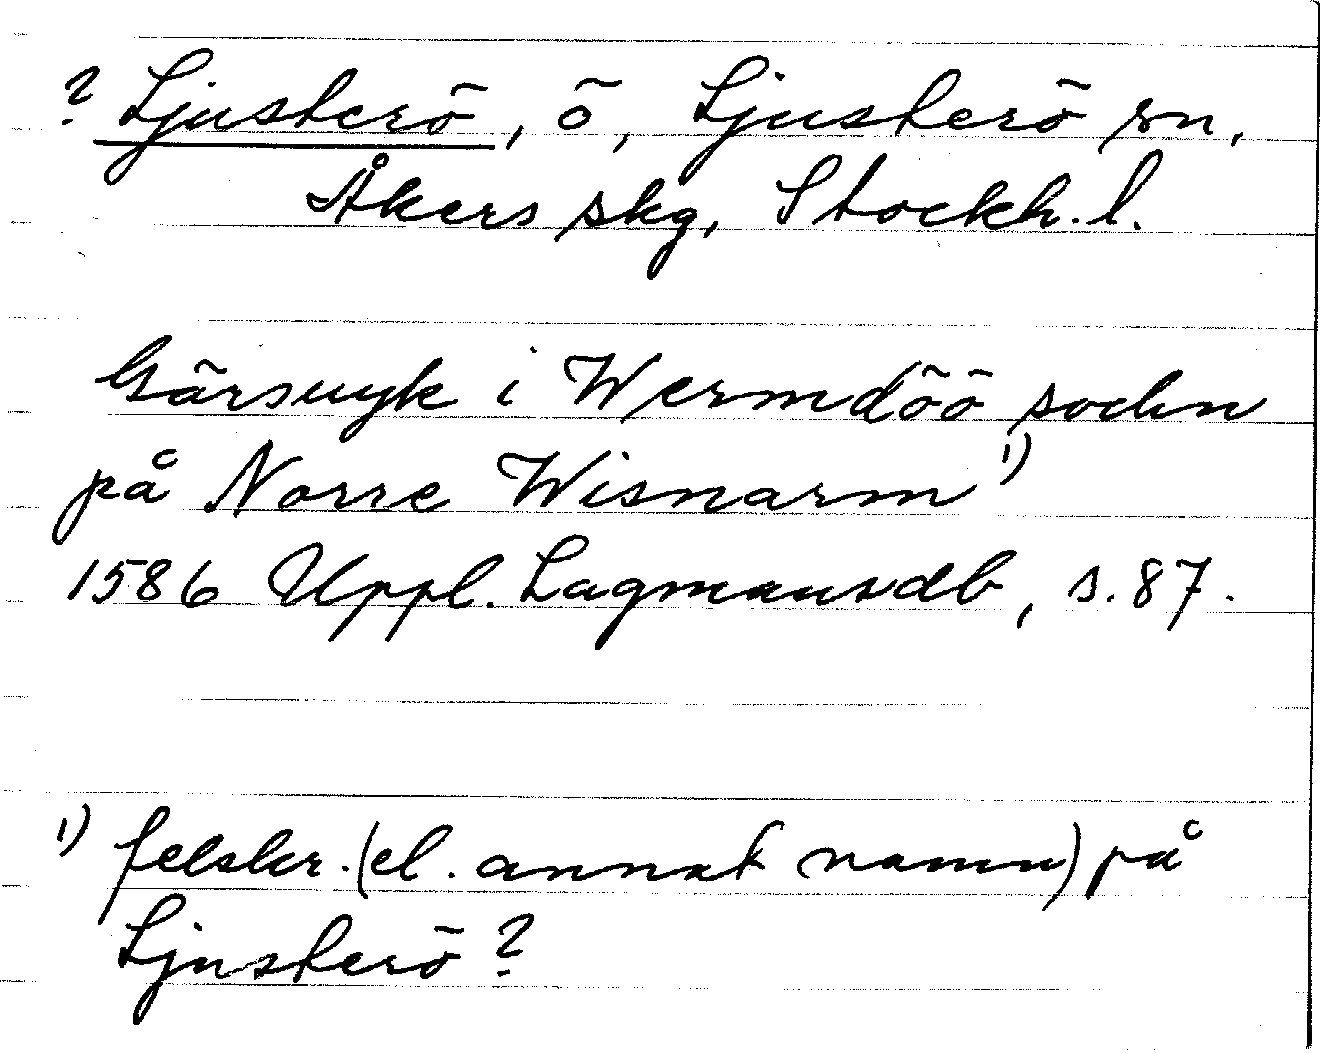 ? Ljusterö, ö, Ljusterö sn,
Åkers skg, Stockh. l.
Gärsuyk i Wermdöö sochn
på Norre Wisnarm 1)
1586 Uppl. Lagmansdb, s. 87.
1) felskr. (el. annat namn) på
Ljusterö?